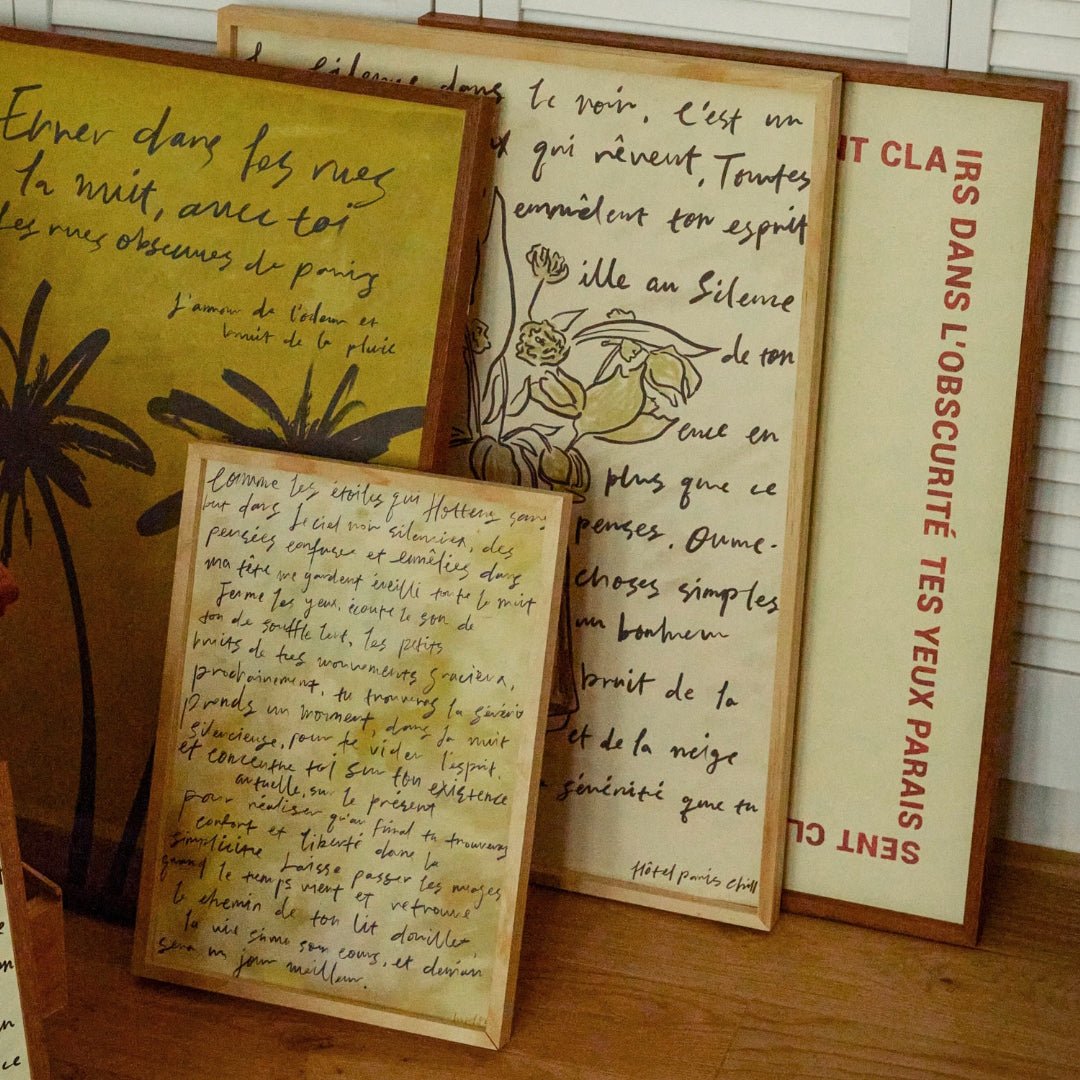 Errer dans les rues
la nuit, avec toi
les rues obscures de paris
L'amour de l'odeur et
bruit de la pluie
Le Silence dans le noir, C'est un
qui rêvent, Toutes
emmêlent ton esprit
ille au Silence
de ton
ence en
plus que ce
penses.
choses simples
un bonheur
bruit de la
et de la neige
sérénité que tu
Hôtel paris chill
NT CLAIRS DANS L'OBSCURITÉ TES YEUX PARAISSENT CL
Comme les étoiles qui flottent sans
but dans le ciel noir silencieux, des
pensées confuses et emmêlées dans
ma tête me gardent éveillé toute la nuit
Ferme les yeux, écoute le son de
ton de souffle lent, les petits
bruits de tes mouvements gracieux,
prochainement, tu trouveras la sérénité
prends un moment, dans la nuit
silencieuse, pour te vider l'esprit.
et concentre toi sur ton existence
actuelle, sur le présent
pour réaliser qu'au final tu trouveras
confort et liberté dans la
simplicité Laisse passer les nuages
quand le temps vient et retrouve
le chemin de ton lit douillet,
la vie suive son cours, et demain
sera un jour meilleur.